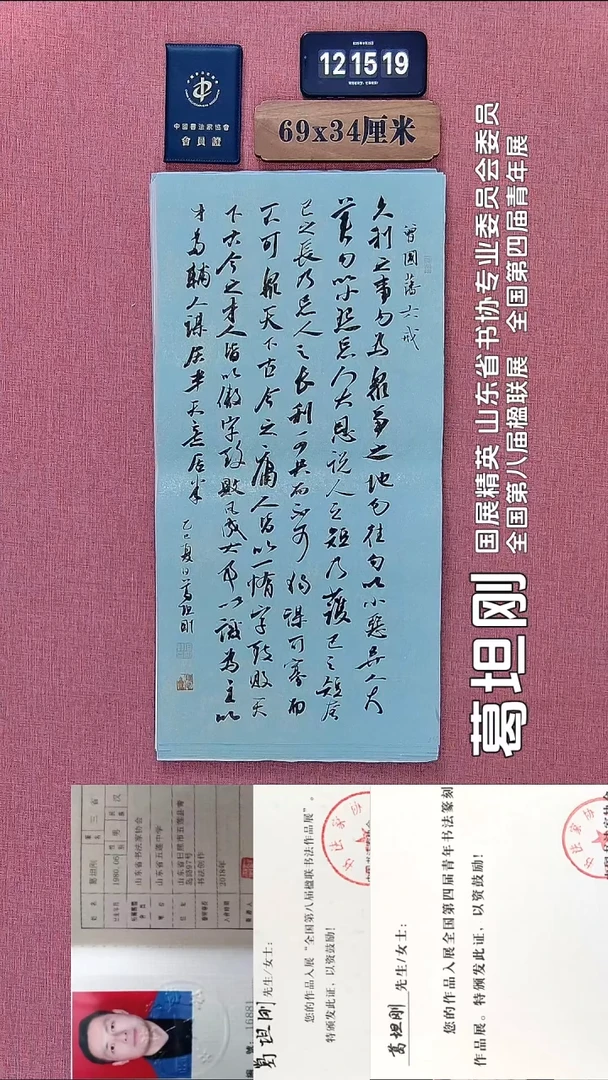 中國書法家協會
會員證
12 15 19
69x34厘米
曾國藩六戒
久利之事勿為眾爭之地勿往勿以小惡弃人大
美勿以小怨忘人大恩說人之短乃護己之短
己之長乃忌人之長利可共而不可獨謀可寡而
不可眾天下古今之庸人皆以一惰字致敗天
下古今之才人皆以傲字致敗凡成大事以識為主以
才為輔人謀居半天意居半
乙巳夏日葛坦刚
葛坦刚
国展精英 山东省书协专业委员会委员
全国第八届楹联展 全国第四届青年展
姓名 葛坦刚
山东省书法家协会
山东省五莲中学
2018年
16881
葛坦刚 先生/女士：
您的作品入展“全国第八届楹联书法作品展”。
特颁发此证，以资鼓励！
葛坦刚 先生/女士：
您的作品入展全国第四届青年书法篆刻
作品展。特颁发此证，以资鼓励！